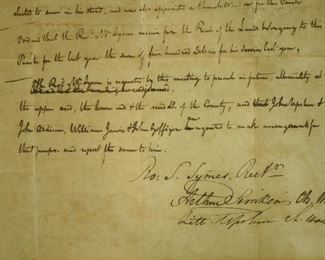 in his stead, and was also appointed a Churchwarden for this
and that the Revd. Mr. Symes receive for the Rents of the Lands belonging to this
Parish for the last year the sum of five hundred Dollars for his services last year,
The Revd. Mr. Symes is requested by this meeting to preach in future, alternately at
the upper end, the lower end & the middle of the County, and that John Upshur &
John Addison, William Jarvis & John are requested to make arrangements for
that purpose and report the same to him.
Ro. S. Symes. Rectr.
Arthur Simkins Ch. W
Litt. Upshur Ch.